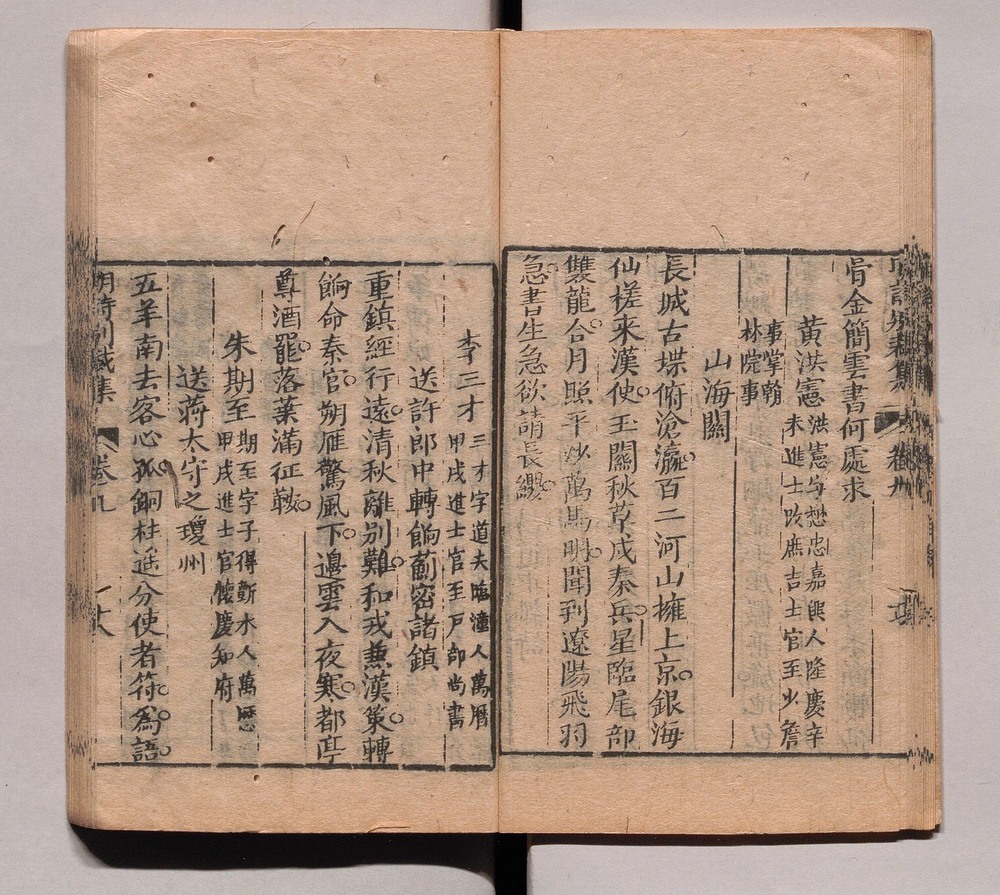 骨金簡雲書何處求
黃洪憲 洪憲字懋忠嘉興人隆慶辛
未進士改庶吉士官至少詹
事掌翰
林院事
山海關
長城古堞俯滄瀛百二河山擁上京銀海
仙槎來漢使玉關秋草戍秦兵星臨尾部
雙龍合月照平沙萬馬明聞到遼陽飛羽
急書生急欲請長纓
李三才 三才字道夫臨潼人萬曆
甲戌進士官至戶部尚書
送許郎中轉餉薊密諸鎮
重鎮經行遠清秋離別難和戎兼漢策轉
餉命秦官朔雁驚風下邊雲入夜寒都亭
尊酒罷落葉滿征鞍
朱期至 期至字子得蘄水人萬曆
甲戌進士官慶知府
送蔣太守之瓊州
五羊南去客心孤銅柱遙分使者符為語
明詩別裁集 卷九